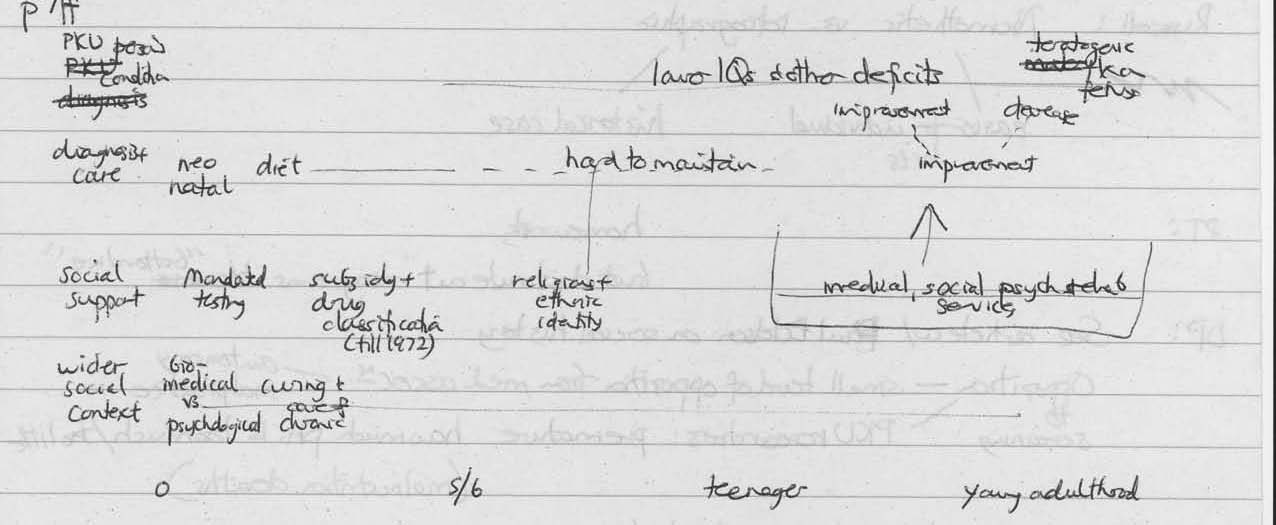 PKU
condition
diagnosis
lower IQs & other deficits
teratogenic
improvement
decrease
diagnosis + care
neo natal
diet
hard to maintain
improvement
social support
mandated testing
subsidy + drug classification (till 1972)
religious + ethnic identity
medical, social psych & rehab services
wider social context
bio-medical vs psychological
curing + care of chronic
0
5/6
teenager
young adulthood